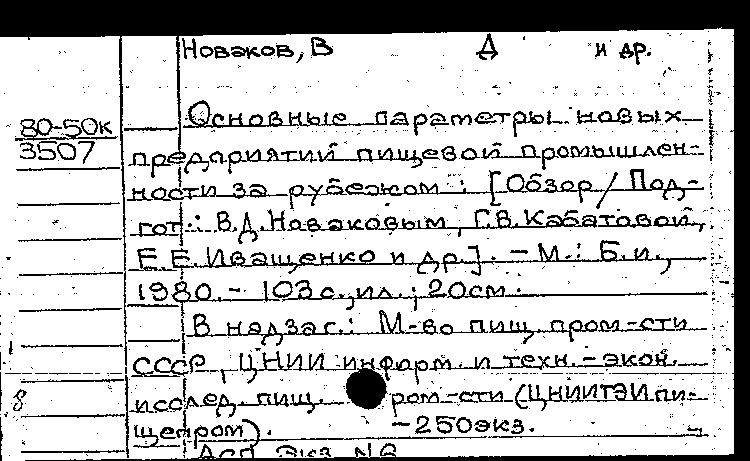 Новаков, В Д и др.
80-50к
3507
Основные параметры новых
предприятий пищевой промышлен-
ности за рубежом : [Обзор / Под-
гот.: В.Д. Новаковым, Г.В. Кабатовой,
Е.Е. Иващенко и др.]. - М.: Б.и.,
1980. - 103 с., ил.; 20см.
В надзаг.: М-во пищ. пром-сти
СССР, ЦНИИ информ. и техн.-экон.
8
исслед. пищ. ром-сти (ЦНИИТЭИпи-
щепром). - 250экз.